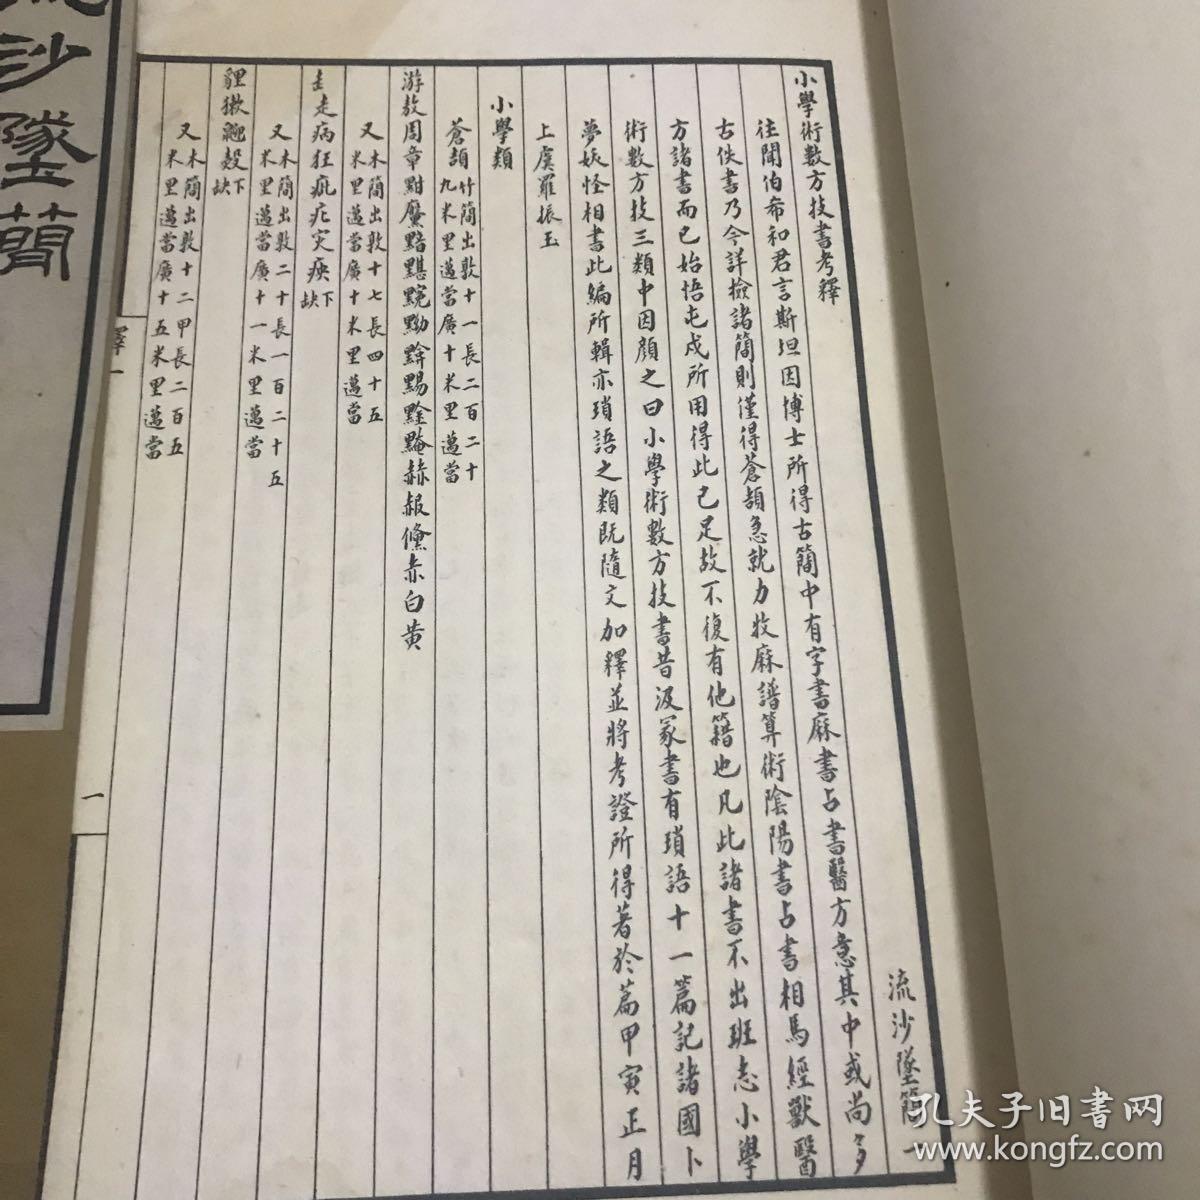 流沙墜簡一
小學術數方技書考釋
往聞伯希和君言斯坦因博士所得古簡中有字書厤書占書醫方意其中或尚多
古佚書乃今詳檢諸簡則僅得蒼頡急就力牧厤譜算術陰陽書占書相馬經獸醫
方諸書而已始悟屯戍所用得此已足故不復有他籍也凡此諸書不出班志小學
術數方技三類中因顏之曰小學術數方技書昔汲冢書有瑣語十一篇記諸國卜
夢妖怪相書此編所輯亦瑣語之類既隨文加釋並將考證所得著於篇甲寅正月
上虞羅振玉
小學類
蒼頡竹簡出敦十一長二百二十
九米里邁當廣十米里邁當
游敖周章黚黶黯黮黤黝黭黶赫赧儵赤白黃
又木簡出敦十七長四十五
米里邁當廣十米里邁當
走病狂疵疕灾殃下缺
又木簡出敦二十長一百二十五
米里邁當廣十一米里邁當
貍獺鼶㲉下缺
又木簡出敦十二甲長二百五
米里邁當廣十五米里邁當
釋一
一
流沙墜簡
孔夫子旧书网
www.kongfz.com